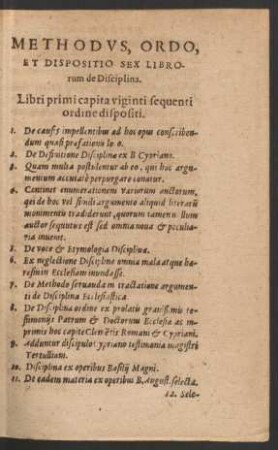 METHODVS, ORDO,
ET DISPOSITIO SEX LIBRO-
rum de Disciplina.
Libri primi capita viginti sequenti
ordine dispositi.
1. De causis impellentibus ad hoc opus conscriben-
dum quasi præfationis lo o.
2. De Definitione Disciplinæ ex B Cypriano.
3. Quàm multa postulentur ab eo, qui hoc ar-
gumentum accuratè pertingere conatur.
4. Continet enumerationem variorum auctorum,
qui de hoc vel simili argumento aliquid literarũ
monimentis tradiderunt, quorum tamen n llum
auctor sequutus est sed omnia noua & peculia-
ria inuenit.
5. De voce & Etymologia Disciplinæ.
6. Ex neglectione Disciplinæ omnia mala atque hæ-
resim in Ecclesiam inundasse.
7. De Methodo seruanda in tractatione argumen-
ti de Disciplina Ecclesiastica.
8. De Disciplinæ ordine ex prolatis grauissimis tes-
timonijs Patrum & Doctorum Ecclesiæ ac in-
primis hoc capite Clementis Romani & Cypriani.
9. Adduntur discipulo Cypriano testimonia magistri
Tertulliani.
10. Disciplina ex operibus Basilij Magni.
11. De eadem materia ex operibus B. August. selecta.
12. Sele-